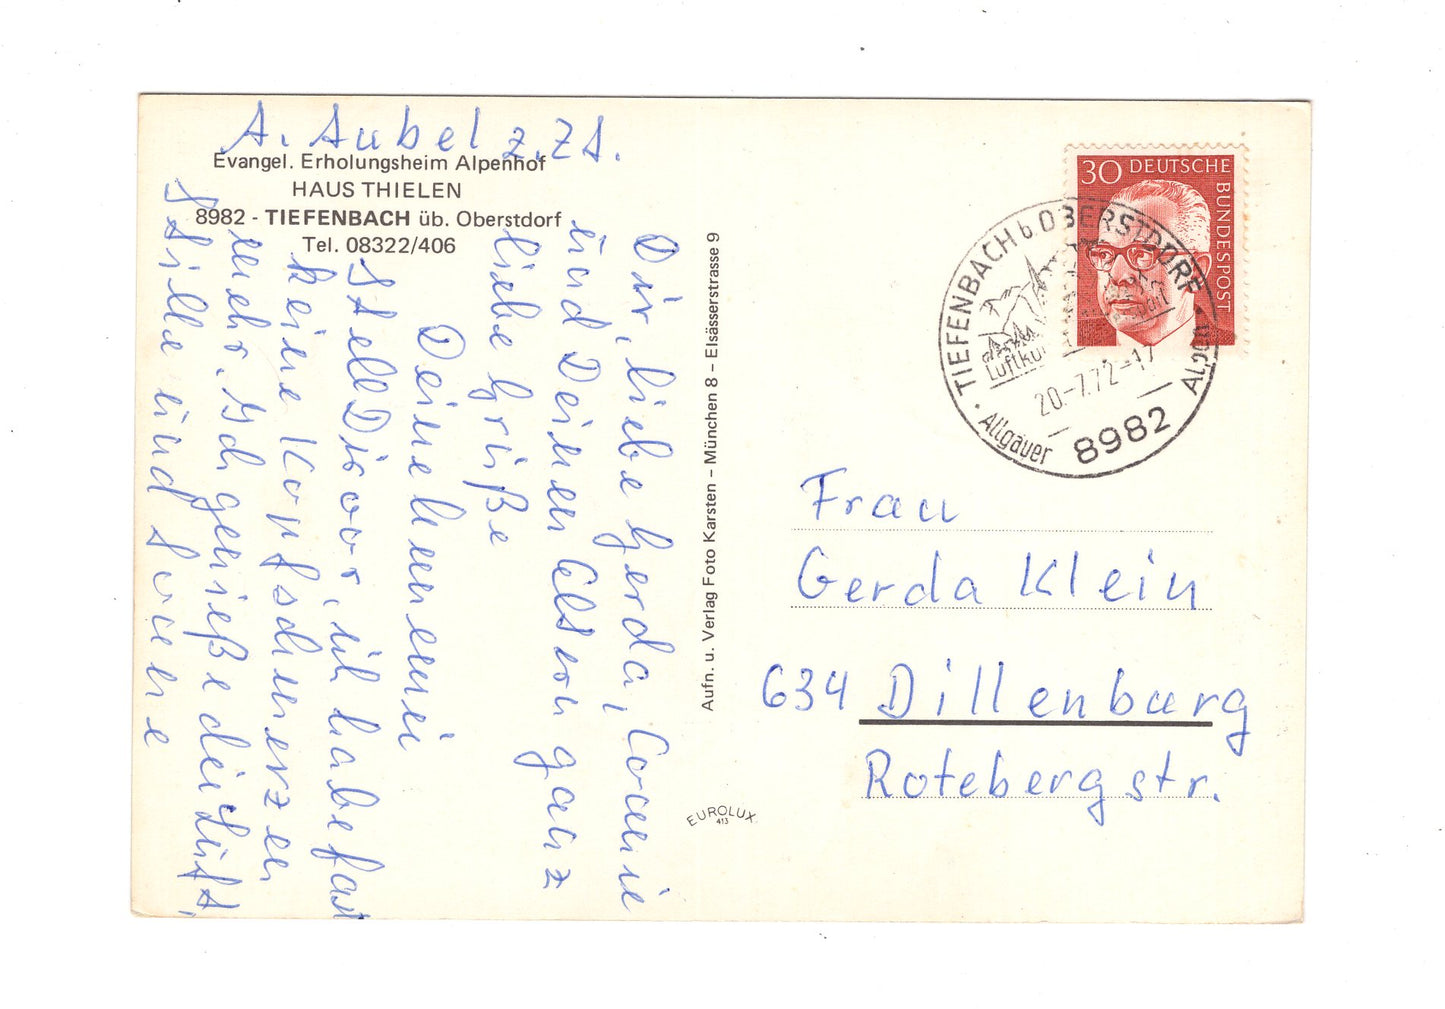 A. Aubel z. Zt.
Evangel. Erholungsheim Alpenhof
HAUS THIELEN
8982 - TIEFENBACH üb. Oberstdorf
Tel. 08322/406
Dir, liebe Gerda, Connie
und Deinen Eltern ganz
liebe Grüße
Deine Hannemei
Stell Dir vor, ich habe fast
keine Kopfschmerzen
mehr. Ich genieße die Luft,
Stille und Sonne
Aufn. u. Verlag Foto Karsten – München 8 – Elsässerstrasse 9
EUROLUX
413
30 DEUTSCHE
BUNDESPOST
TIEFENBACH b OBERSTDORF
Luftku
20.-7.72-17
8982
Allgäuer Alpen
Frau
Gerda Klein
634 Dillenburg
Rotebergstr.